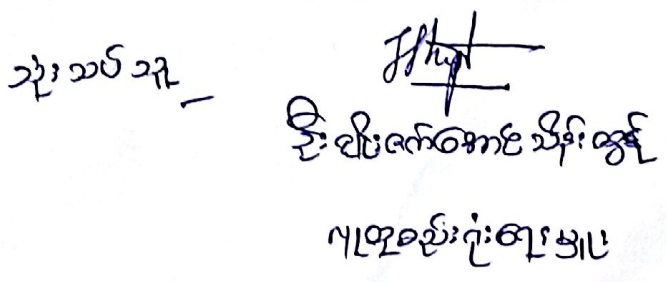 သုံးသပ်သူ -
ဦးဖြိုးဇက်အောင်သိန်းထွန်း
လူထုစည်းရုံးရေးမှူး